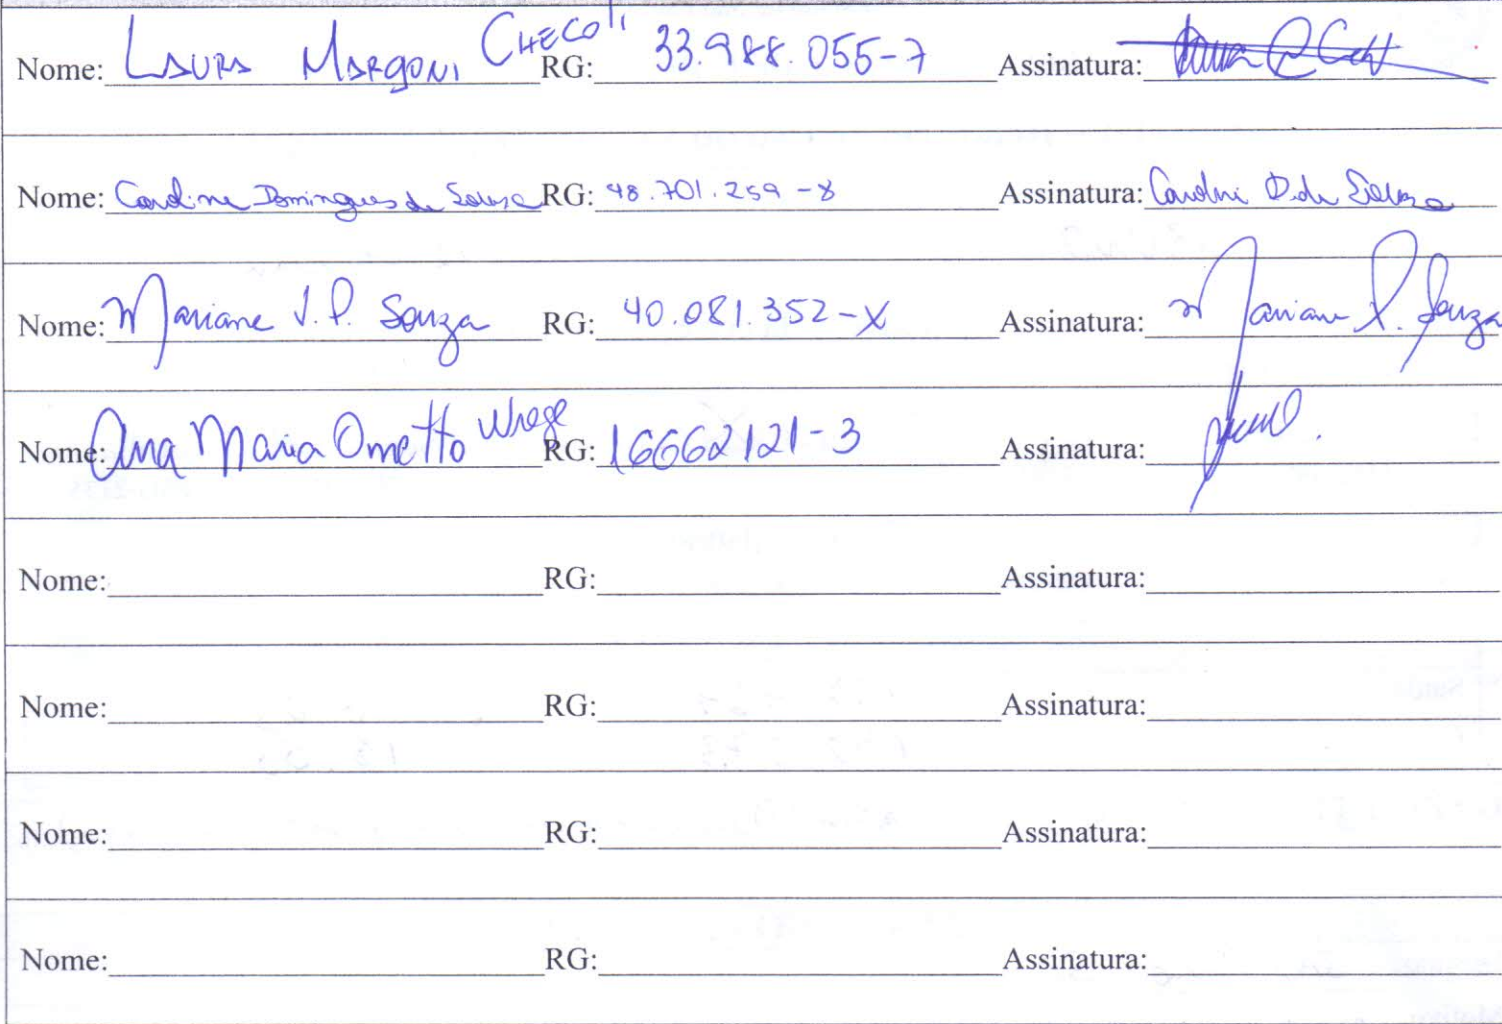 Nome: Laura Margoni Checoli RG: 33.988.055-7 Assinatura:
Nome: Caroline Domingues de Souza RG: 48.701.259-8 Assinatura: Caroline D. de Souza
Nome: Mariane J. P. Souza RG: 40.081.352-X Assinatura: Mariane P. Souza
Nome: Ana Maria Ometto Wrege RG: 16662121-3 Assinatura:
Nome: RG: Assinatura:
Nome: RG: Assinatura:
Nome: RG: Assinatura:
Nome: RG: Assinatura: